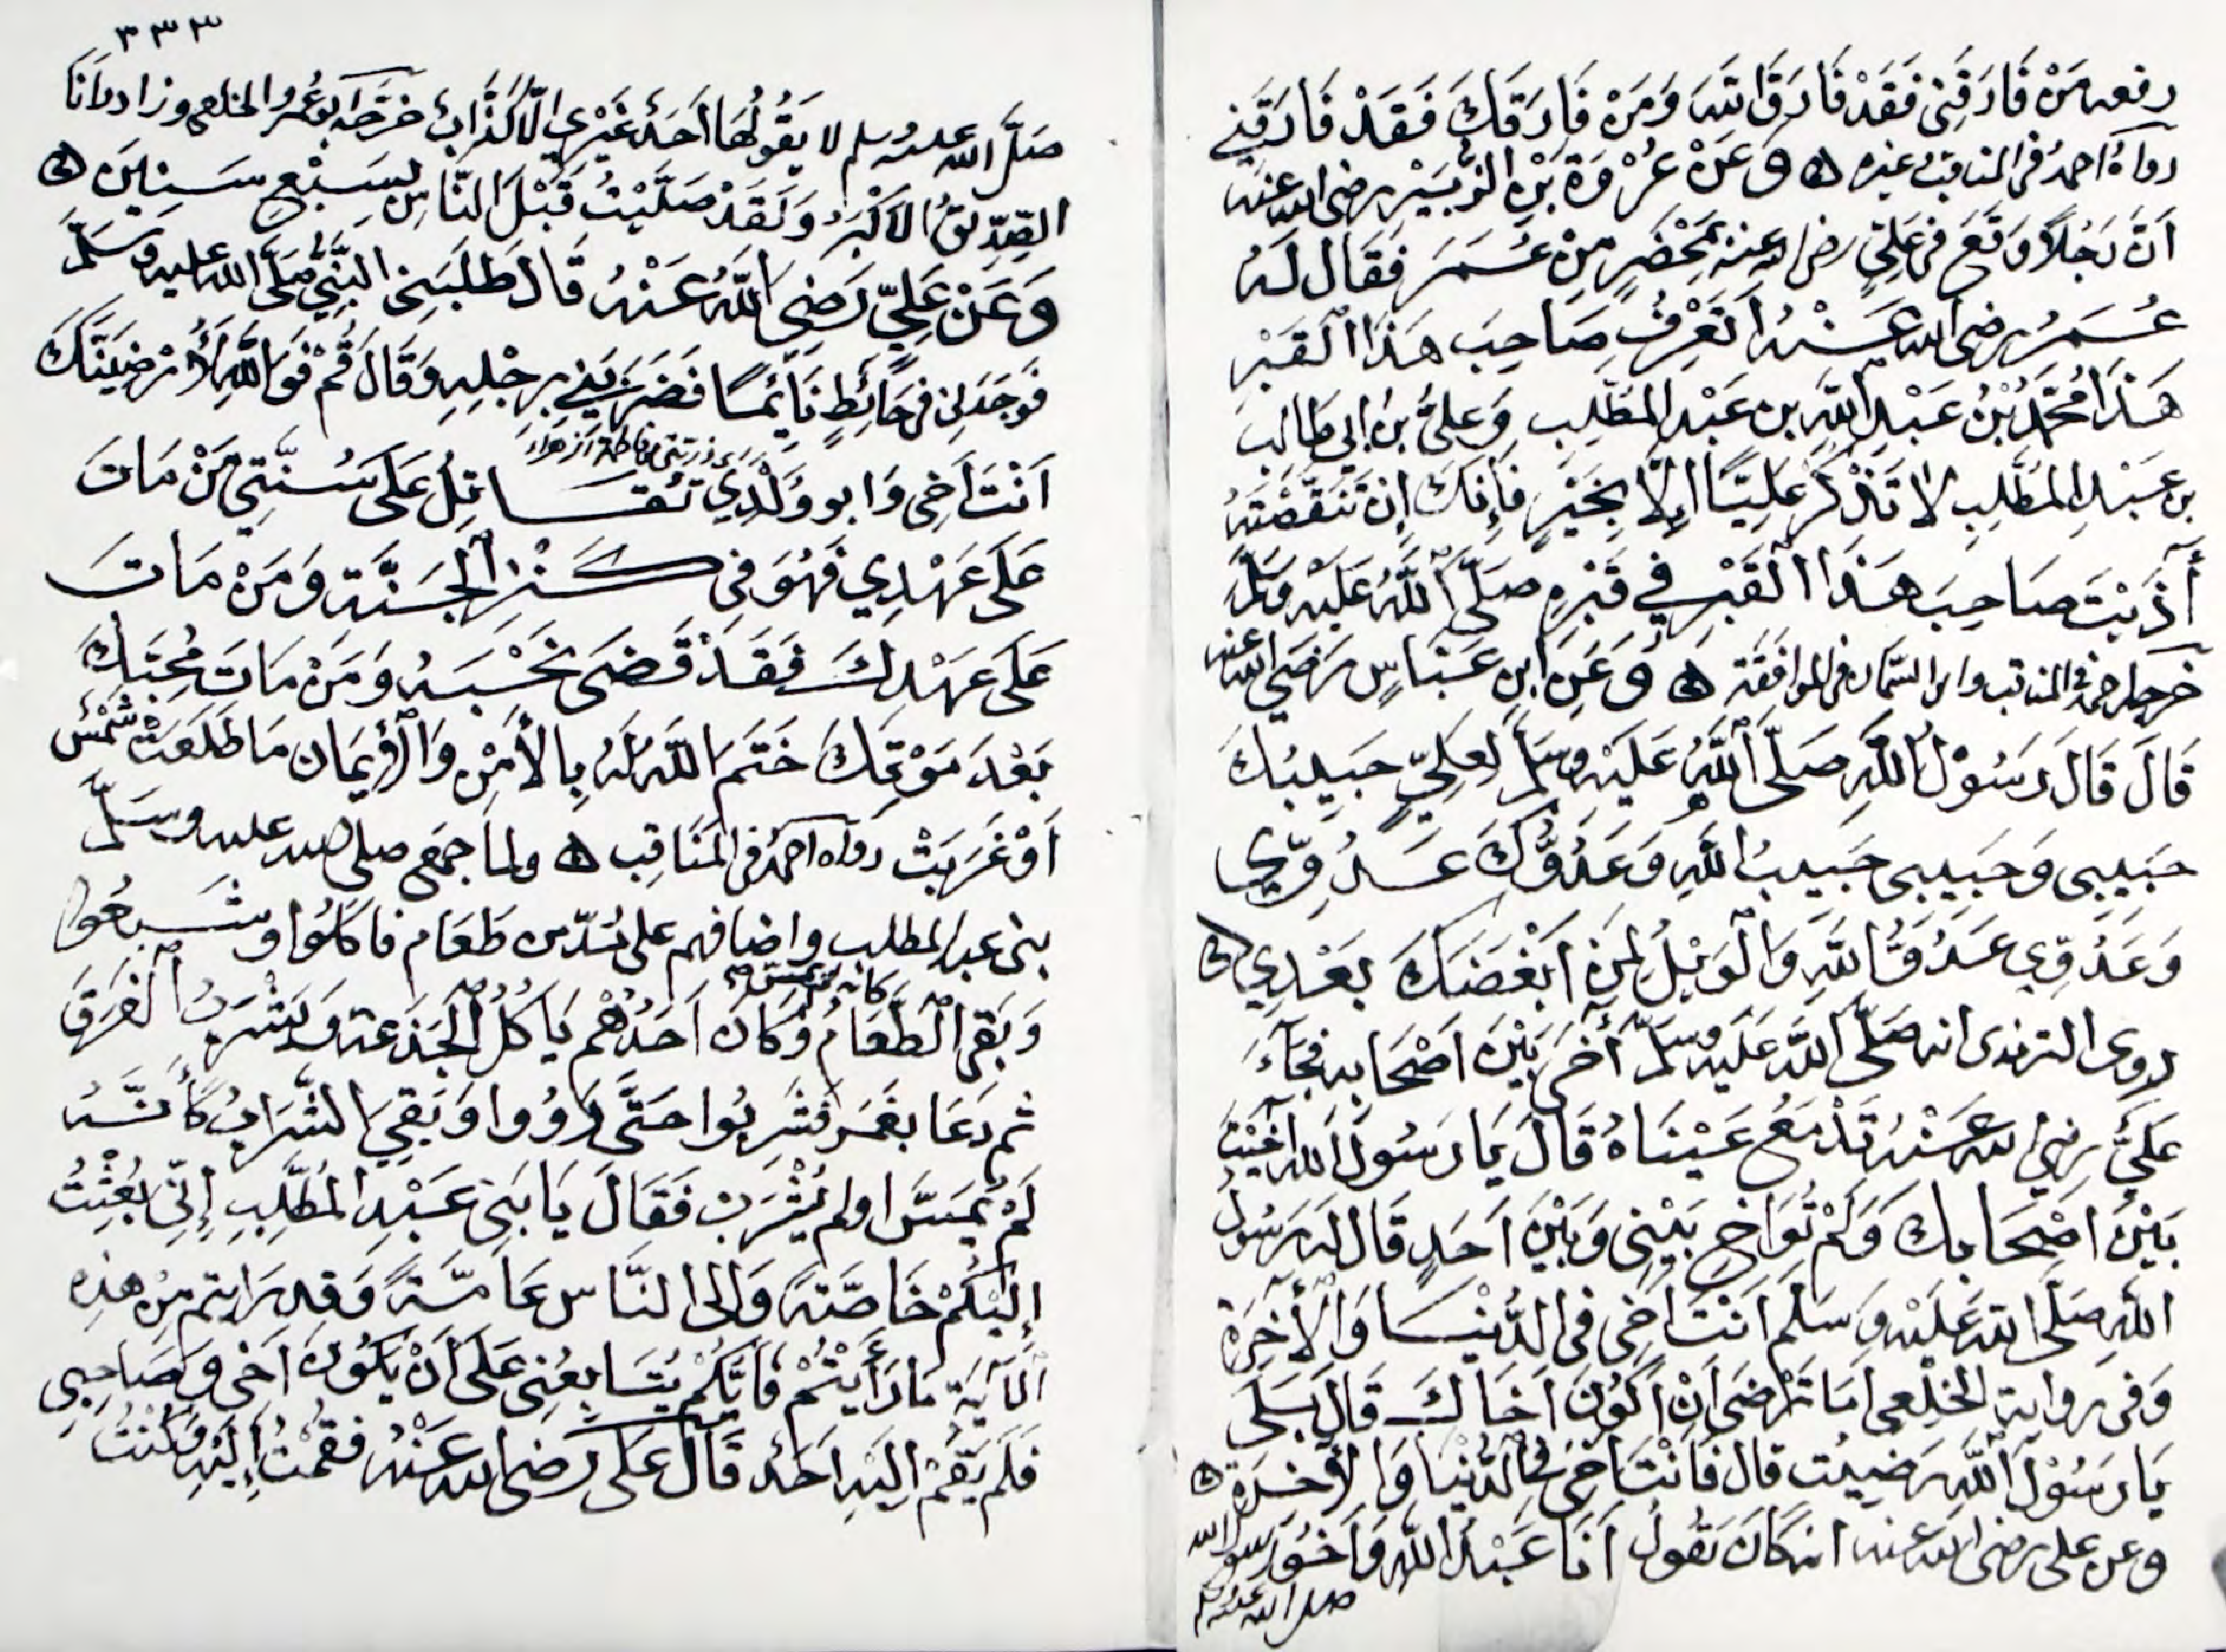 رفعه مَنْ فَارَقَنِي فَقَدْ فَارَقَ اللّٰهَ وَمَنْ فَارَقَكَ فَقَدْ فَارَقَنِي
رواهُ احمدُ في المناقب وغيره وَعَنْ عُرْوَةَ بْنِ الزُّبَيْرِ رضي الله عنه
اَنَّ رَجُلاً وَقَعَ في عَلِيٍّ رضي الله عنه بِمَحْضَرٍ مِنْ عُمَرَ فَقَالَ لَهُ
عُمَرُ رضي الله عَنْهُ اَتَعْرِفُ صَاحِبَ هَذَا الْقَبْرِ
هَذَا مُحَمَّدُ بْنُ عَبْدِ اللّٰهِ بن عَبْدِ المُطَّلِبِ وَعَلِيُّ بن ابي طالب
بن عَبْدِ المُطَّلِبِ لا تَذْكُرْ عَلِيًّا اِلاَّ بِخَيْرٍ فَاِنَّكَ اِنْ تَنَقَّصْتَهُ
أٰذَيْتَ صَاحِبَ هَذَا الْقَبْرِ فِي قَبْرِهِ صَلَّى اللّٰهُ عَلَيْهِ وَسَلَّمَ
خرجه احمد في المناقب وابن السّمّان في الموافقة وَعَنِ ابنِ عَبَّاسٍ رَضِيَ الله عنه
قَالَ قَالَ رَسُوْلُ اللّٰهِ صَلَّى اللّٰهُ عَلَيْهِ وسَلَّم لِعَلِيٍّ حَبِيبُكَ
حَبِيبِي وَحَبِيبِي حَبِيبُ اللّٰهِ وَعَدُوُّكَ عَدُوِّي
وَعَدُوِّي عَدُوُّ اللّٰهِ وَالْوَيْلُ لِمَنْ اَبْغَضَكَ بَعْدِي
روى الترمذى انه صَلَّى اللّٰهُ عَلَيْهِ وَسَلَّمَ أٰخَى بَيْنَ اَصْحَابِهِ فَجَآءَ
عَلِيٌّ رضي الله عَنْهُ تَدْمَعُ عَيْنَاهُ قَالَ يَا رَسُولَ الله اٰخَيْتَ
بَيْنَ اَصْحَابِكَ وَلَمْ تُوَاخِ بَيْنِي وَبَيْنَ اَحَدٍ قَالَ لَهُ رَسُولُ
اللّٰهِ صَلَّى اللّٰه عَلَيْهِ وَسَلَّم اَنْتَ اَخِي فى الدُّنْيَا وَالْاٰخِرَةِ
وَفي رواية الخِلَعِي اَمَا تَرْضَى اَنْ اَكُونَ اَخَاكَ قَالَ بَلَى
يَا رَسُوْلَ اللّٰهِ رَضِيتُ قال فَاَنْتَ اَخِي في الدُّنْيَا وَالْاٰخِرَةِ
وعن على رضى الله عنه انه كَانَ يَقُولُ اَنَا عَبْدُ اللّٰهِ وَاَخُو رسول الله
صلى الله عليه وسلم
٣٣٣
صَلَّى الله عليه وسلم لا يَقُولُهَا اَحَدٌ غَيْرِي اِلَّا كَذَّابٌ خَرَّجَهُ ابو عُمَر والخلعي وزاد وَاَنَا
الصِّدِّيقُ الْاَكْبَرُ وَلَقَدْ صَلَّيْتُ قَبْلَ النَّاسِ بِسَبْعِ سَنِينَ
وَعَنْ عَلِيٍّ رَضِيَ اللّٰهُ عَنْهُ قَالَ طَلَبَنِي النَّبِيُّ صَلَّى الله عليه وسَلَّمَ
فَوَجَدَنِي في حَائِطٍ نَائِمًا فَضَرَبَنِي بِرِجْلِهِ وَقَالَ قُمْ فَوَاللّٰهِ لَأُرْضِيَنَّكَ
اَنْتَ اَخِي وَابو وَلَدِي تُقَاتِلُ عَلَى سُنَّتِي مَنْ مَاتَ
عَلَى عَهْدِي فَهُوَ فِي كَنْزِ الْجَنَّةِ وَمَنْ مَاتَ
عَلَى عَهْدِكَ فَقَدْ قَضَى نَحْبَهُ وَمَنْ مَاتَ مُحِبَّكَ
بَعْدَ مَوْتِكَ خَتَمَ اللّٰهُ لَهُ بِالْأَمْنِ وَالْاِيمَانِ مَا طَلَعَتْ شَمْسٌ
اَوْ غَرَبَتْ رواه احمدُ في المَنَاقِبِ ولما جمع صلى الله عليه وسَلَّمَ
بنى عبد المطلب واضافهم على مُدّ من طَعَام فَاَكَلُوا وشَبِعُوا
وَبَقِيَ الطَّعَامُ وَكَانَ اَحَدُهُمْ يَاْكُلُ الْجَذَعَةَ وَيَشْرَبُ الْفَرَقَ
ثم دَعَا بِغُمَرٍ فَشَرِبُوا حَتَّى رَوُوا وَبَقِيَ الشَّرَابُ كَأَنَّهُ
لَمْ يُمَسَّ او لم يُشْرَبْ فَقَالَ يَا بَنِي عَبْدِ المُطَّلِبِ اِنِّي بُعِثْتُ
اِلَيْكُمْ خَاصَّةً وَاِلى النَّاسِ عَامَّةً وَقد رَايتم مِنْ هذِهِ
الْآيَةِ مَا رَاَيْتُمْ فَاَيُّكُمْ يُبَايِعُنِي عَلَى اَنْ يَكُوْنَ اَخِي وَصَاحِبِي
فَلَمْ يَقُمْ اِلَيْهِ اَحَدٌ قَالَ عَلَى رَضِيَ الله عَنْهُ فَقُمْتُ اِلَيْهِ وَكُنْتُ